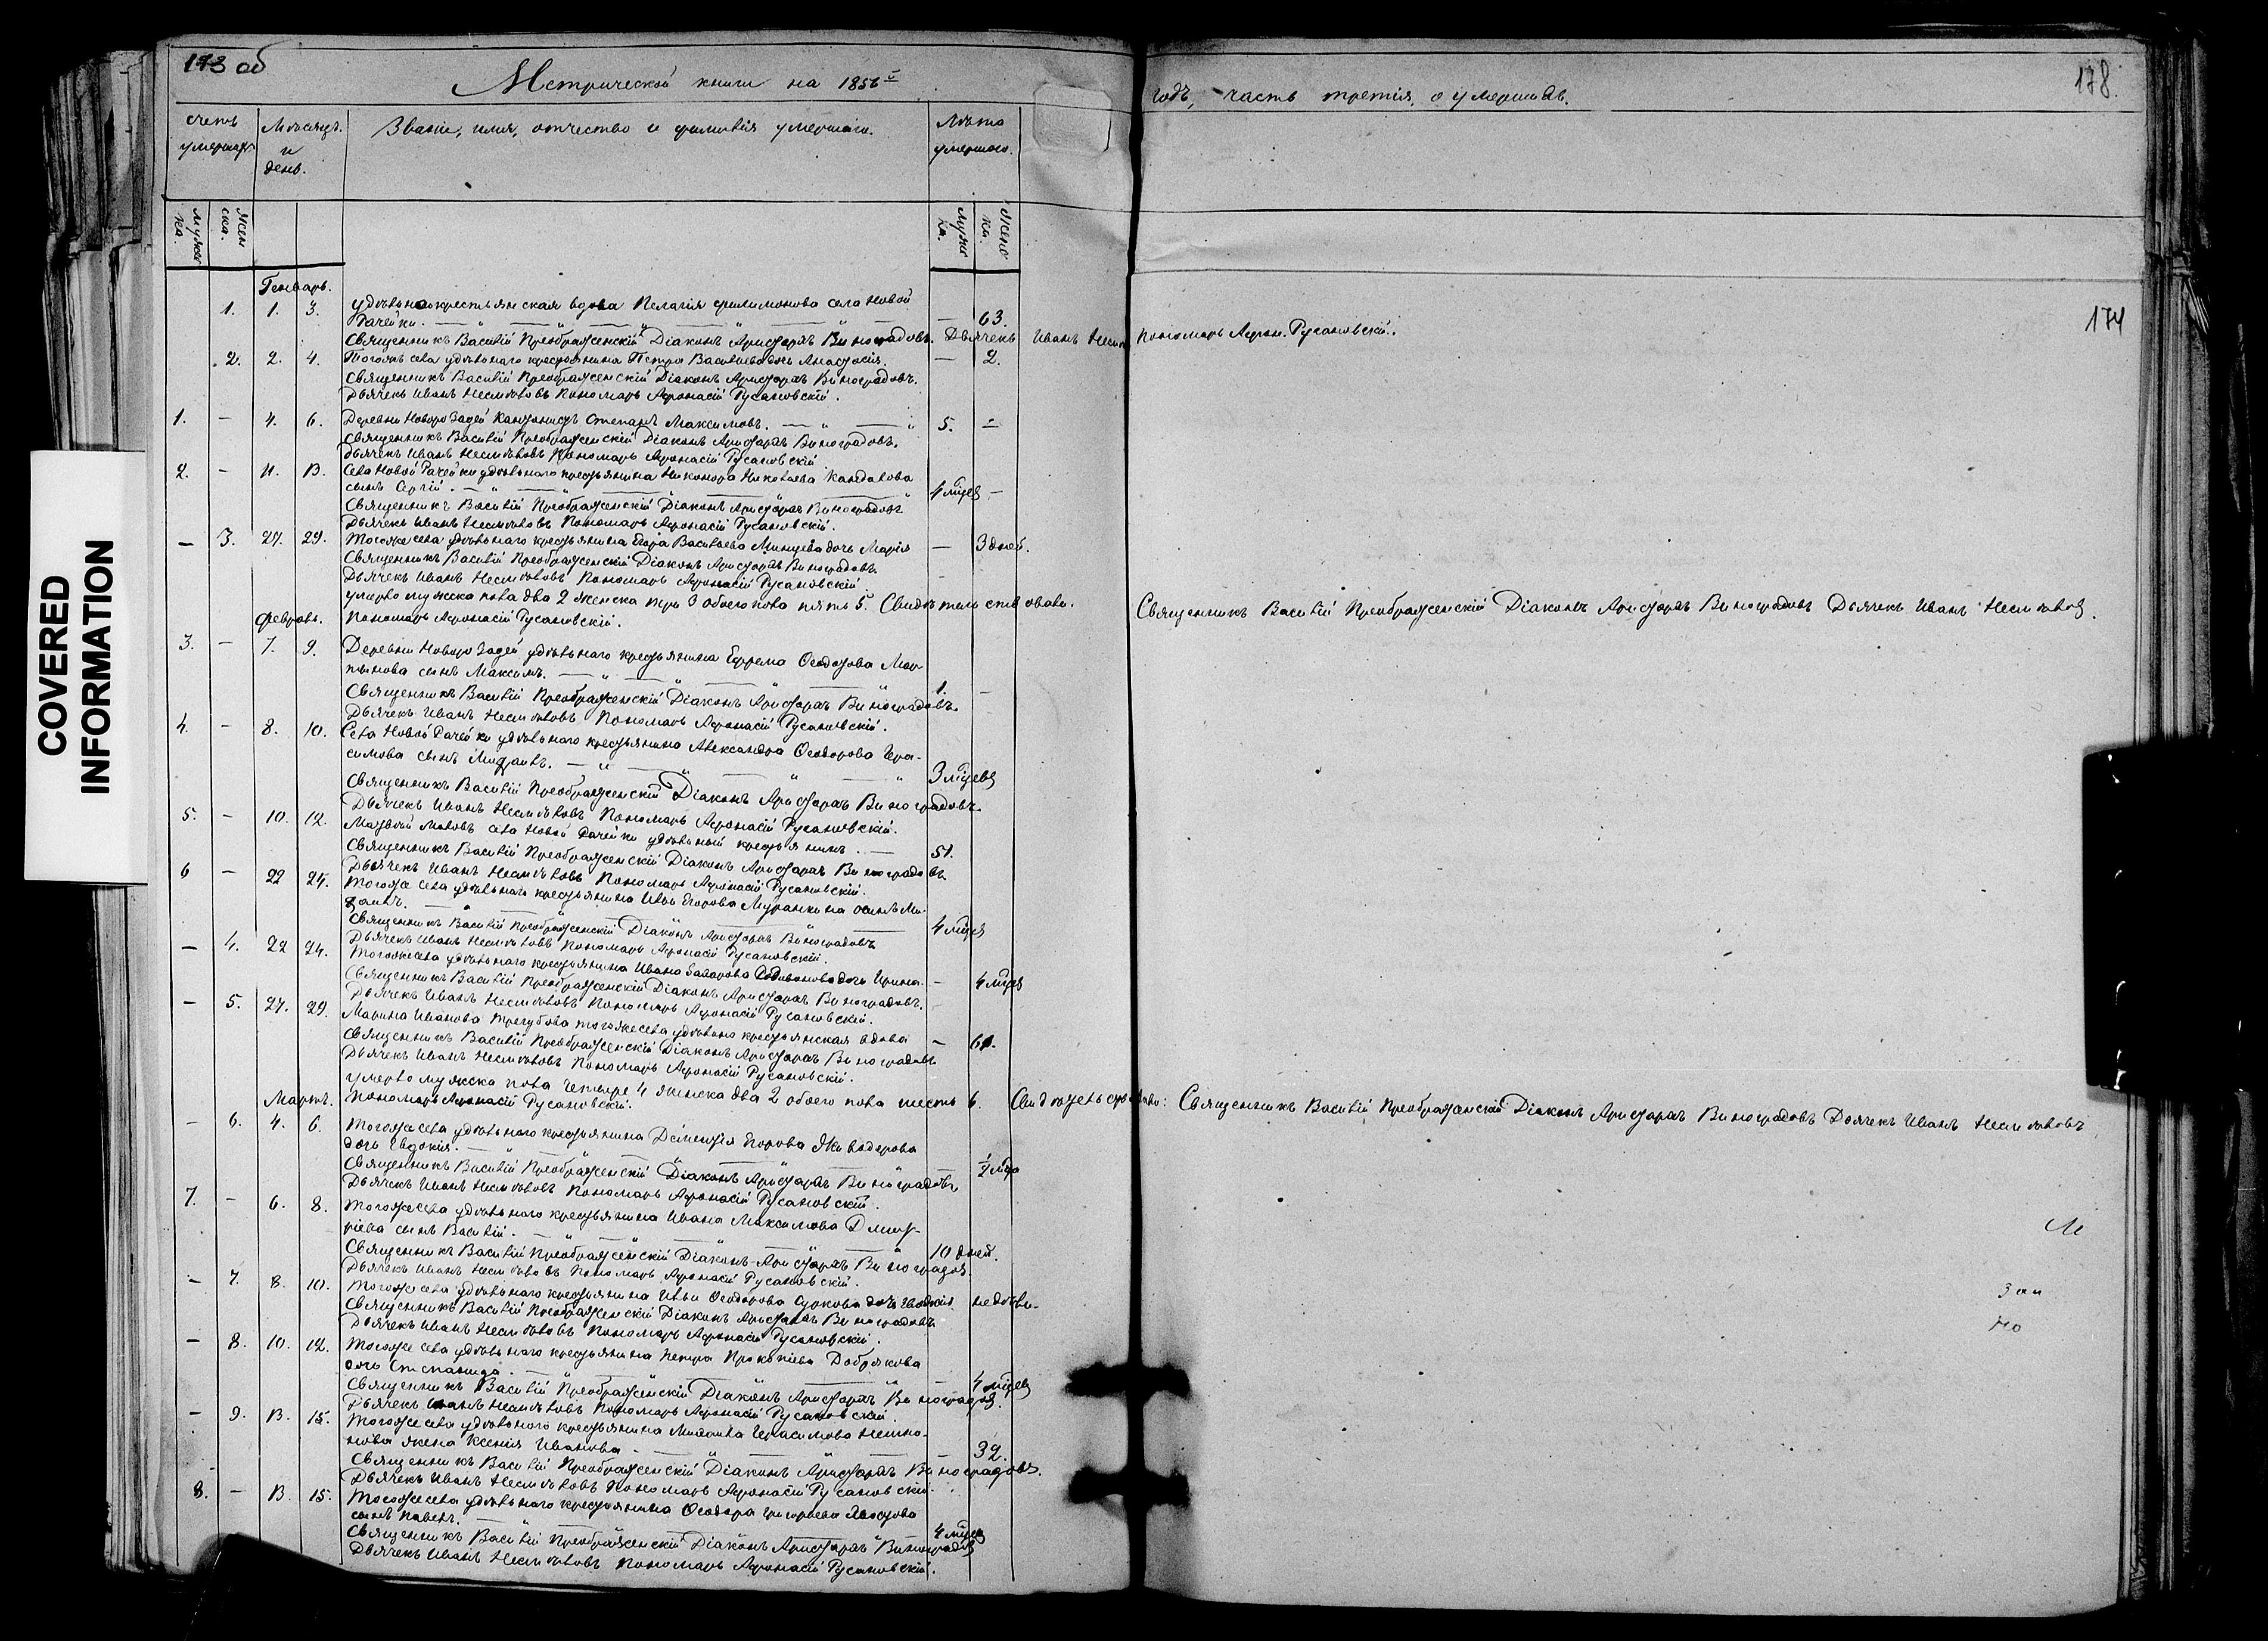 173 об
Метрической книги на 1856й
годъ, часть третія, о умершихъ.
178.
174
COVERED
INFORMATION
счетъ умершихъ
Мѣсяцъ и день.
Званіе, имя, отчество и фамилія умершаго.
Лѣта умершаго.
мужска.
женска.
мужска.
женска.
Генварь.
1. 1. 3. удѣльнокрестьянская вдова Пелагія Филимонова села Новой
Рачейки. — 63.
Священникъ Василій Преображенскій Діаконъ Аристархъ Виноградовъ. Дьячекъ Иванъ Пономарь Афон. Русановскій.
2. 2. 4. Тогожъ села удѣльнаго крестьянина Петра Васильева дочь Анастасія. — 2.
Священникъ Василій Преображенскій Діаконъ Аристархъ Виноградовъ.
Дьячекъ Иванъ Несмѣловъ Пономарь Афонасій Русановскій.
1. — 4. 6. Деревни Кантонистъ Степанъ Максимовъ. 5. —
Священникъ Василій Преображенскій Діаконъ Аристархъ Виноградовъ.
Дьячекъ Иванъ Несмѣловъ Пономарь Афонасій Русановскій
2. — 11. 13. Села Новой Рачейки удѣльнаго крестьянина Никонора Николаева Кандалова
сынъ Сергій. 4 мѣцев —
Священникъ Василій Преображенскій Діаконъ Аристархъ Виноградовъ
Дьячекъ Иванъ Несмѣловъ Пономарь Афонасій Русановскій.
— 3. 27. 29. Тогоже села удѣльнаго крестьянина Егора Васильева дочь Марія — 3 дней.
Священникъ Василій Преображенскій Діаконъ Аристархъ Виноградовъ
Дьячекъ Иванъ Несмѣловъ Пономарь Афонасій Русановскій
умерло мужска пола два 2 женска три 3 обоего пола пять 5. Свидѣтельствовали. Священникъ Василій Преображенскій Діаконъ Аристархъ Виноградовъ Дьячекъ Иванъ Несмѣловъ.
Февраль. Пономарь Афонасій Русановскій.
3. — 7. 9. Деревни удѣльнаго крестьянина Ефрема Ѳеодорова Мар-
тынова сынъ Максимъ. 1. —
Священникъ Василій Преображенскій Діаконъ Аристархъ Виноградовъ.
Дьячекъ Иванъ Несмѣловъ Пономарь Афонасій Русановскій.
4. — 8. 10. Села Новой Рачейки удѣльнаго крестьянина Александра Ѳеодорова Гера-
симова сынъ Михаилъ. 3 мѣцевъ
Священникъ Василій Преображенскій Діаконъ Аристархъ Виноградовъ
Дьячекъ Иванъ Несмѣловъ Пономарь Афонасій Русановскій.
5. — 10. 12. села Новой Рачейки удѣльный крестьянинъ. — 51.
Священникъ Василій Преображенскій Діаконъ Аристархъ Виноградовъ
Дьячекъ Иванъ Несмѣловъ Пономарь Афонасій Русановскій.
6 — 22 24. Тогоже села удѣльнаго крестьянина Ильи Егорова сынъ Ми-
хаилъ. 4 мѣцев
Священникъ Василій Преображенскій Діаконъ Аристархъ Виноградовъ
Дьячекъ Иванъ Несмѣловъ Пономарь Афонасій Русановскій.
— 4. 22 24. Тогоже села удѣльнаго крестьянина Ивана Захарова дочь Ирина — 4 мѣцев
Священникъ Василій Преображенскій Діаконъ Аристархъ Виноградовъ.
Дьячекъ Иванъ Несмѣловъ Пономарь Афонасій Русановскій.
— 5. 27. 29. Марина Иванова Трегубова тогоже села удѣльно крестьянская вдова — 61.
Священникъ Василій Преображенскій Діаконъ Аристархъ Виноградовъ
Дьячекъ Иванъ Несмѣловъ Пономарь Афонасій Русановскій.
умерло мужска пола четыре 4 женска два 2 обоего пола шесть 6. Свидѣтельствовали: Священникъ Василій Преображенскій Діаконъ Аристархъ Виноградовъ Дьячекъ Иванъ Несмѣловъ
Мартъ. Пономарь Афонасій Русановскій.
— 6. 4. 6. Тогоже села удѣльнаго крестьянина Дементія Егорова
дочь Евдокія. —
Священникъ Василій Преображенскій Діаконъ Аристархъ Виноградовъ
Дьячекъ Иванъ Несмѣловъ Пономарь Афонасій Русановскій.
7. — 6. 8. Тогоже села удѣльнаго крестьянина Ивана Максимова Дмит-
ріева сынъ Василій. 10 дней.
Священникъ Василій Преображенскій Діаконъ Аристархъ Виноградов
Дьячекъ Иванъ Несмѣловъ Пономарь Афонасій Русановскій.
— 7. 8. 10. Тогоже села удѣльнаго крестьянина Ильи Ѳеодорова Суркова дочь Евдокія недѣли.
Священникъ Василій Преображенскій Діаконъ Аристархъ Виноградовъ
Дьячекъ Иванъ Несмѣловъ Пономарь Афонасій Русановскій.
— 8. 10. 12. Тогоже села удѣльнаго крестьянина Петра Прокопіева Добрякова
дочь Степанида. — 4 мѣцев
Священникъ Василій Преображенскій Діаконъ Аристархъ Виноградов.
Дьячекъ Иванъ Несмѣловъ Пономарь Афонасій Русановскій.
— 9. 13. 15. Тогоже села удѣльнаго крестьянина Михаила Герасимова
жена Ксенія Иванова — 32.
Священникъ Василій Преображенскій Діаконъ Аристархъ Виноградовъ.
Дьячекъ Иванъ Несмѣловъ Пономарь Афонасій Русановскій.
8. — 13. 15. Тогоже села удѣльнаго крестьянина Ѳеодора Григорьева
сынъ Павелъ. 4 мѣцев
Священникъ Василій Преображенскій Діаконъ Аристархъ Виноградов
Дьячекъ Иванъ Несмѣловъ Пономарь Афонасій Русановскій.